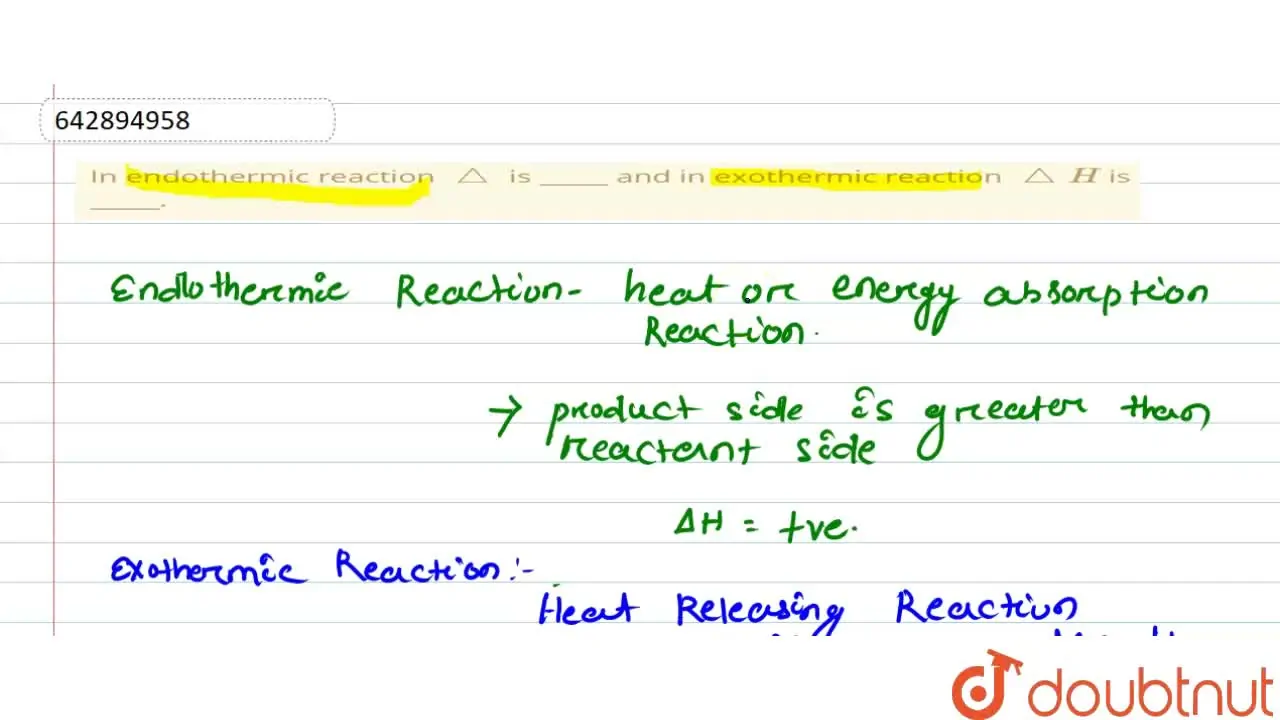 642894958
In endothermic reaction △ is _____ and in exothermic reaction △ H is
_____.
Endothermic Reaction- heat or energy absorption
Reaction.
→ product side is greater than
reactant side
ΔH = +ve.
Exothermic Reaction:-
Heat Releasing Reaction
doubtnut